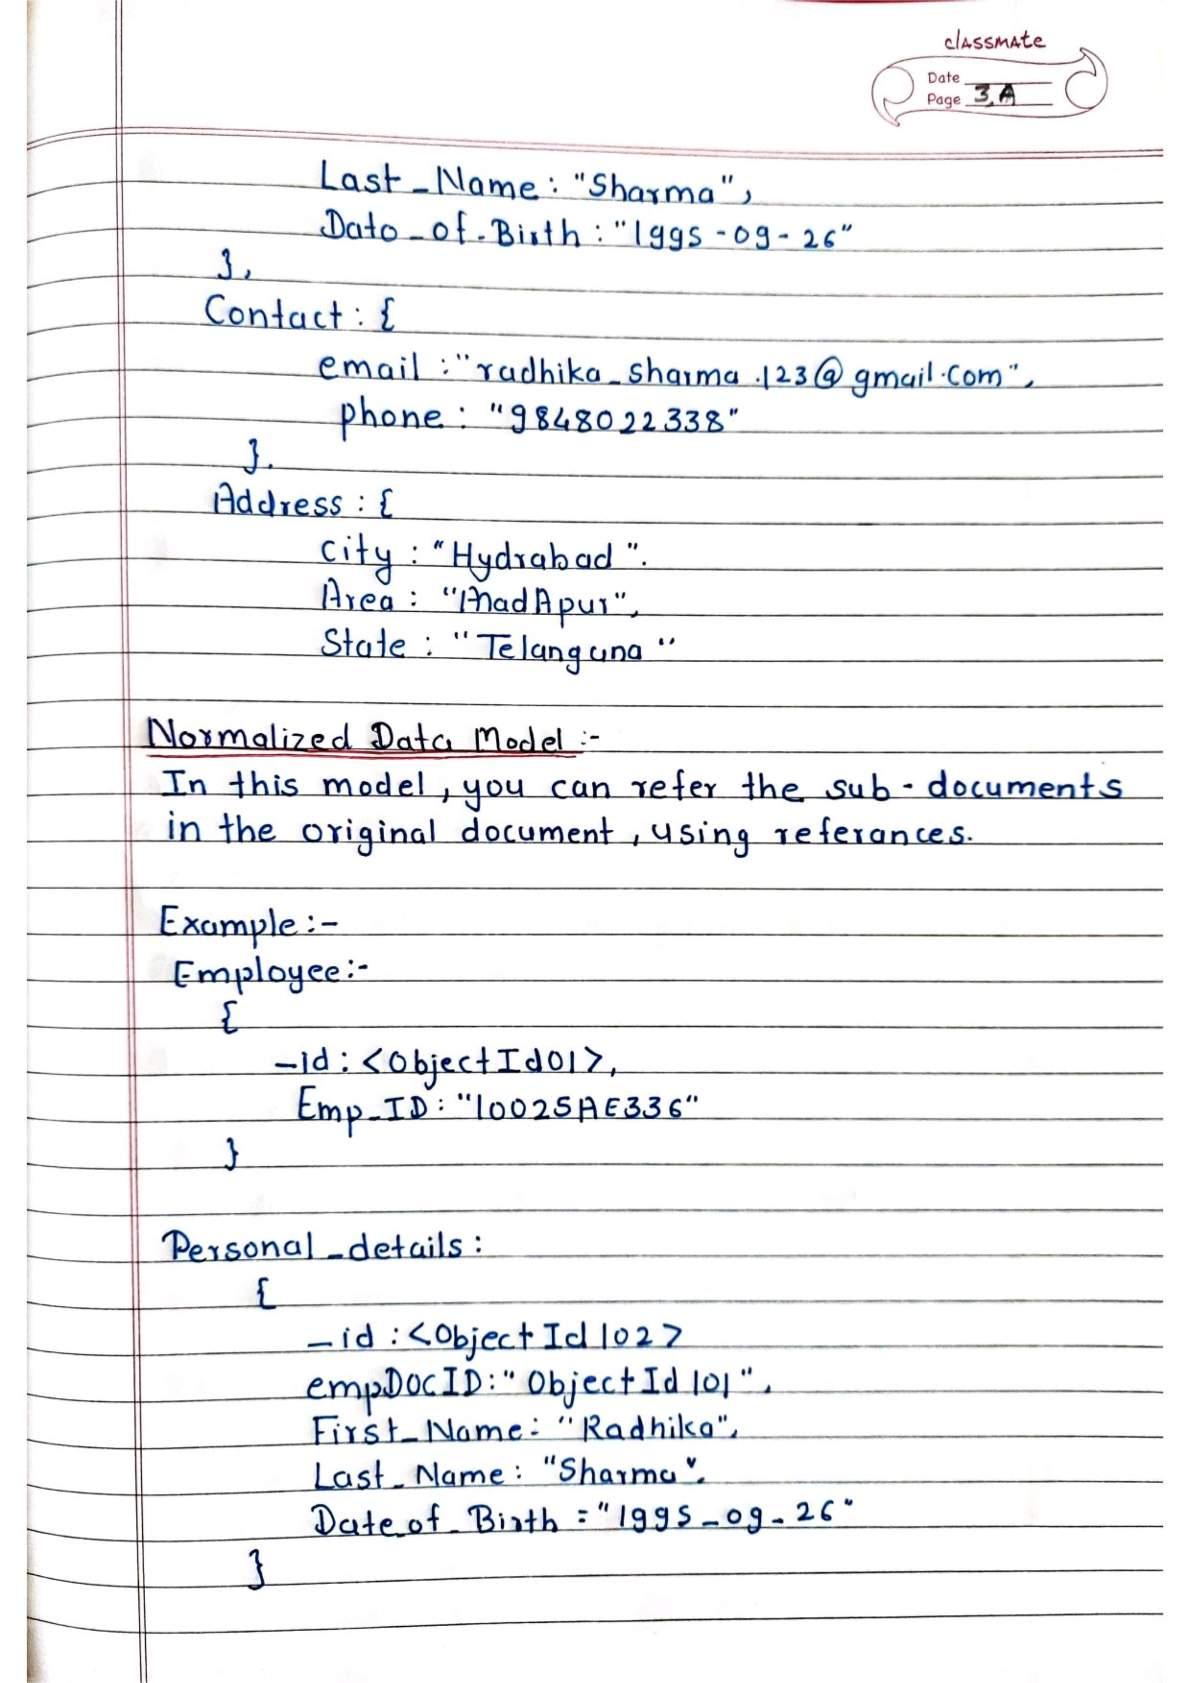 classmate
Date
Page 3.A
Last_Name : "Sharma",
Dato_of_Birth : "1995-09-26"
},
Contact : {
email : "radhika_sharma.123@gmail.com",
phone : "9848022338"
}.
Address : {
city : "Hydrabad".
Area : "MadApur",
State : "Telangana"
Normalized Data Model :-
In this model, you can refer the sub-documents
in the original document, using referances.
Example :-
Employee :-
{
_id : <ObjectId01>,
Emp_ID : "10025AE336"
}
Personal_details :
{
_id : <ObjectId102>
empDOCID : "ObjectId101",
First_Name : "Radhika",
Last_Name : "Sharma".
Date_of_Birth = "1995-09-26"
}